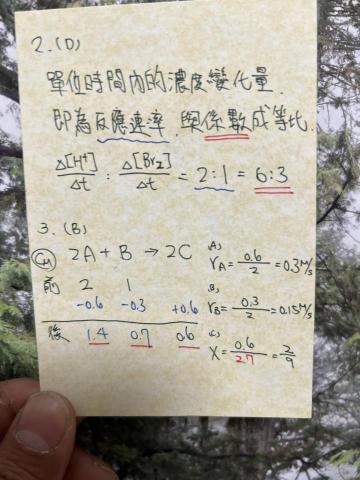 2.(D)
單位時間內的濃度變化量.
即為反應速率,與係數成等比.
Δ[H⁺]/Δt : Δ[Br₂]/Δt = 2:1 = 6:3
3.(B)
(CM) 2A + B → 2C
前 2 1
-0.6 -0.3 +0.6
後 1.4 0.7 0.6
A)
rA = 0.6/2 = 0.3 M/s
B)
rB = 0.3/2 = 0.15 M/s
C)
X = 0.6/2.7 = 2/9